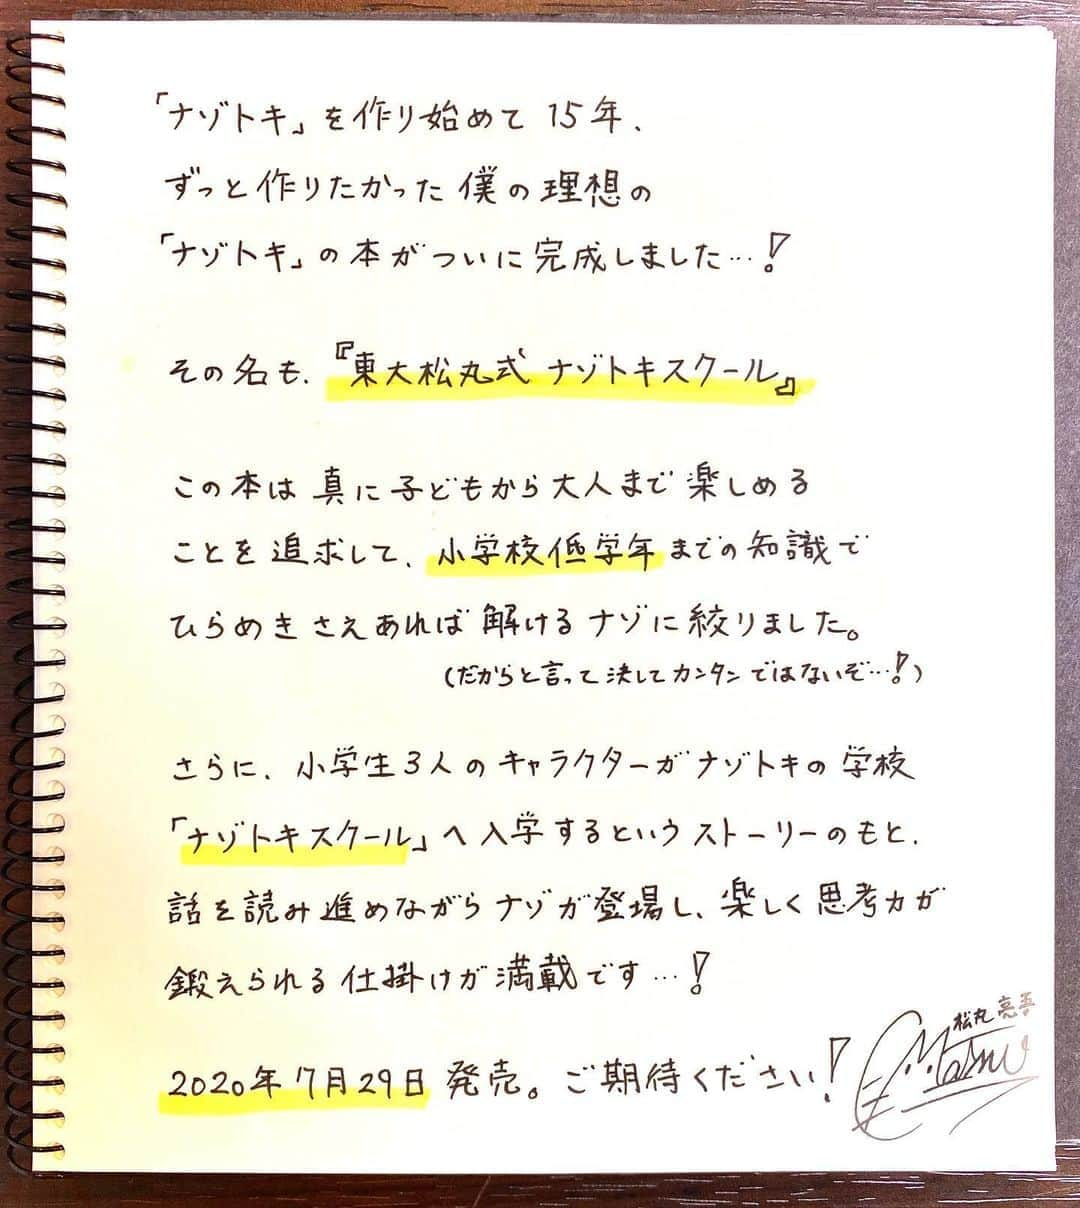 「ナゾトキ」を作り始めて15年、
ずっと作りたかった僕の理想の
「ナゾトキ」の本がついに完成しました…!
その名も、『東大松丸式 ナゾトキスクール』
この本は真に子どもから大人まで楽しめる
ことを追求して、小学校低学年までの知識で
ひらめきさえあれば解けるナゾに絞りました。
(だからと言って決してカンタンではないぞ…!)
さらに、小学生3人のキャラクターがナゾトキの学校
「ナゾトキスクール」へ入学するというストーリーのもと、
話を読み進めながらナゾが登場し、楽しく思考力が
鍛えられる仕掛けが満載です…!
2020年7月29日発売。ご期待ください!
松丸亮吾
Matsu